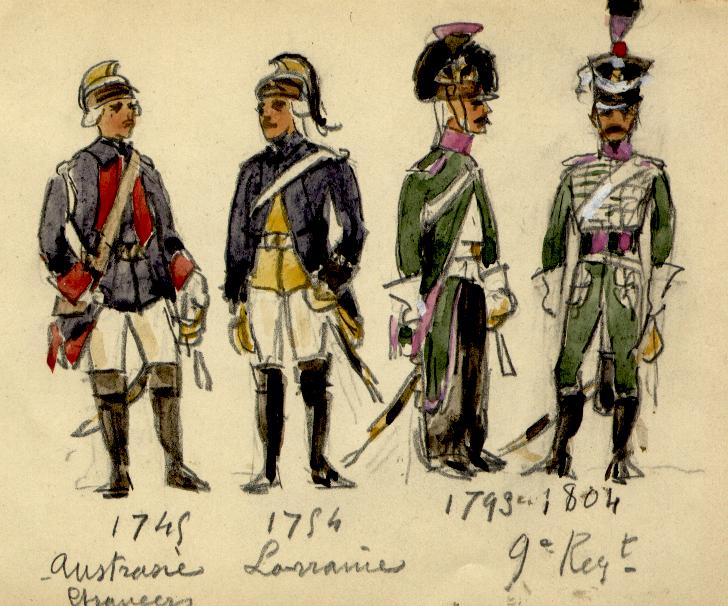 1745
Austrasie
Etrangers
1754
Lorraine
1793-1804
9e Regt